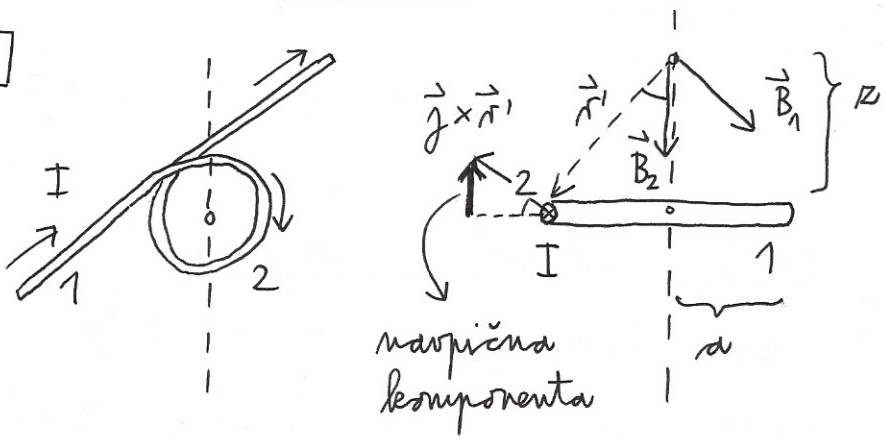 I
1
2
j × r'
r'
B₁
B₂
z
2
I
1
a
navpična
komponenta